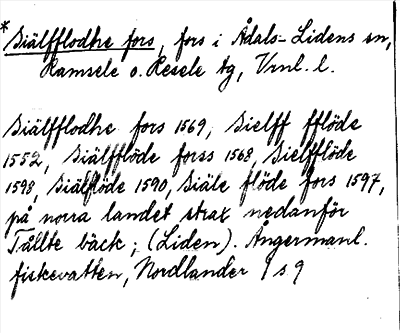 * Siälfflodhe fors, fors i Ådals-Lidens sn,
Ramsele o. Resele tg, Vrnl. l.
Siälfflodhe fors 1569, Sielff fflöde
1552, Siälfflöde forss 1568, Sielfflöde
1598, Siälflöde 1590, Siäle flöde fors 1597,
på norra landet strax nedanför
Tållte bäck; (Liden). Ångermanl.
fiskevatten, Nordlander 1 s 9